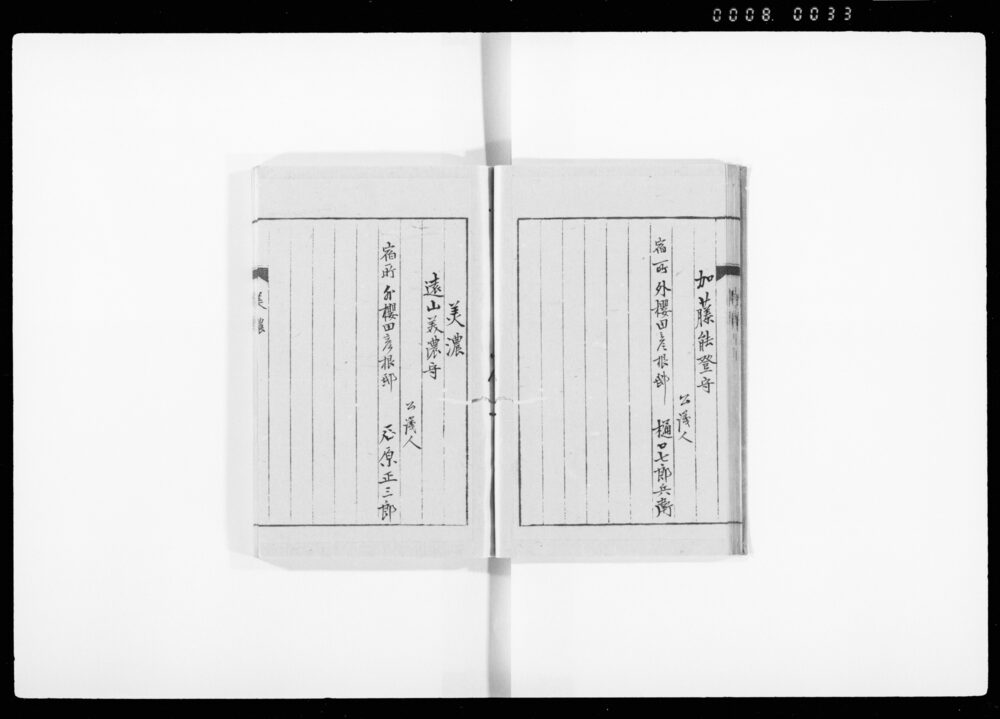 0008 0033
加藤能登守
公議人
宿所外櫻田彦根邸 樋口七郎兵衛
美濃
遠山美濃守
公議人
宿所外櫻田彦根邸 原正三郎
美濃